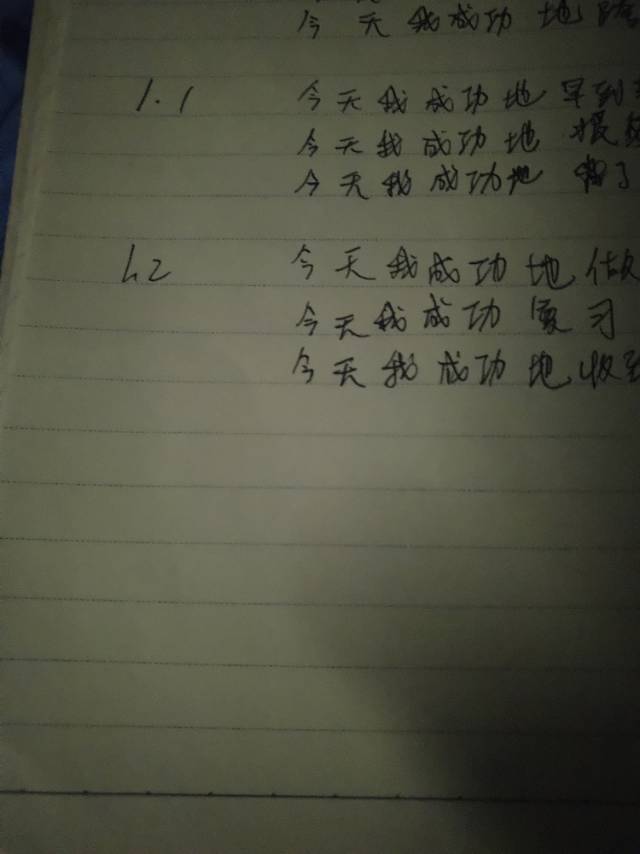 今天我成功地
1.1 今天我成功地早到
今天我成功地
今天我成功地 了
1.2 今天我成功地做
今天我成功复习
今天我成功地收到